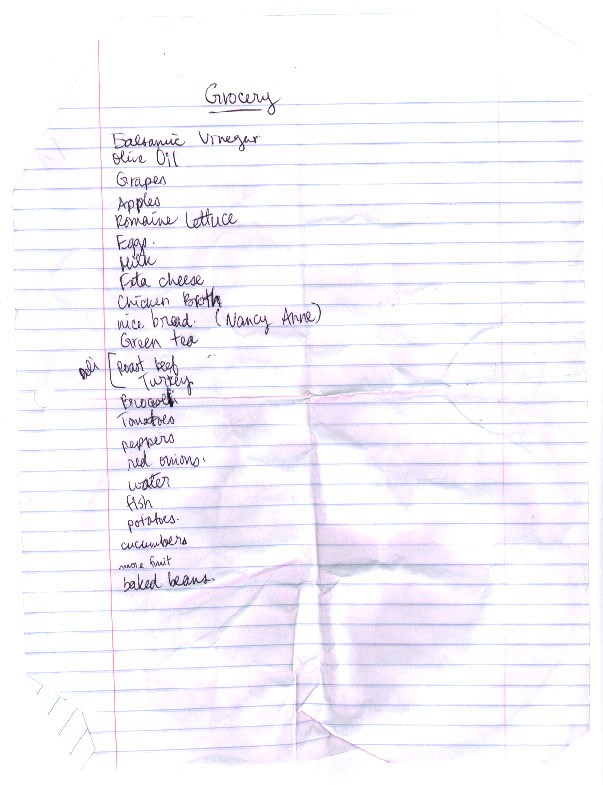 Grocery
Balsamic Vinegar
Olive Oil
Grapes
Apples
Romaine Lettuce
Eggs.
Milk
Feta cheese
Chicken Broth
nice bread. (Nancy Anne)
Green tea
Deli [ Roast beef
Turkey
Broccoli
Tomatoes
peppers
red onions.
water
fish
potatoes.
cucumbers
more fruit
baked beans.